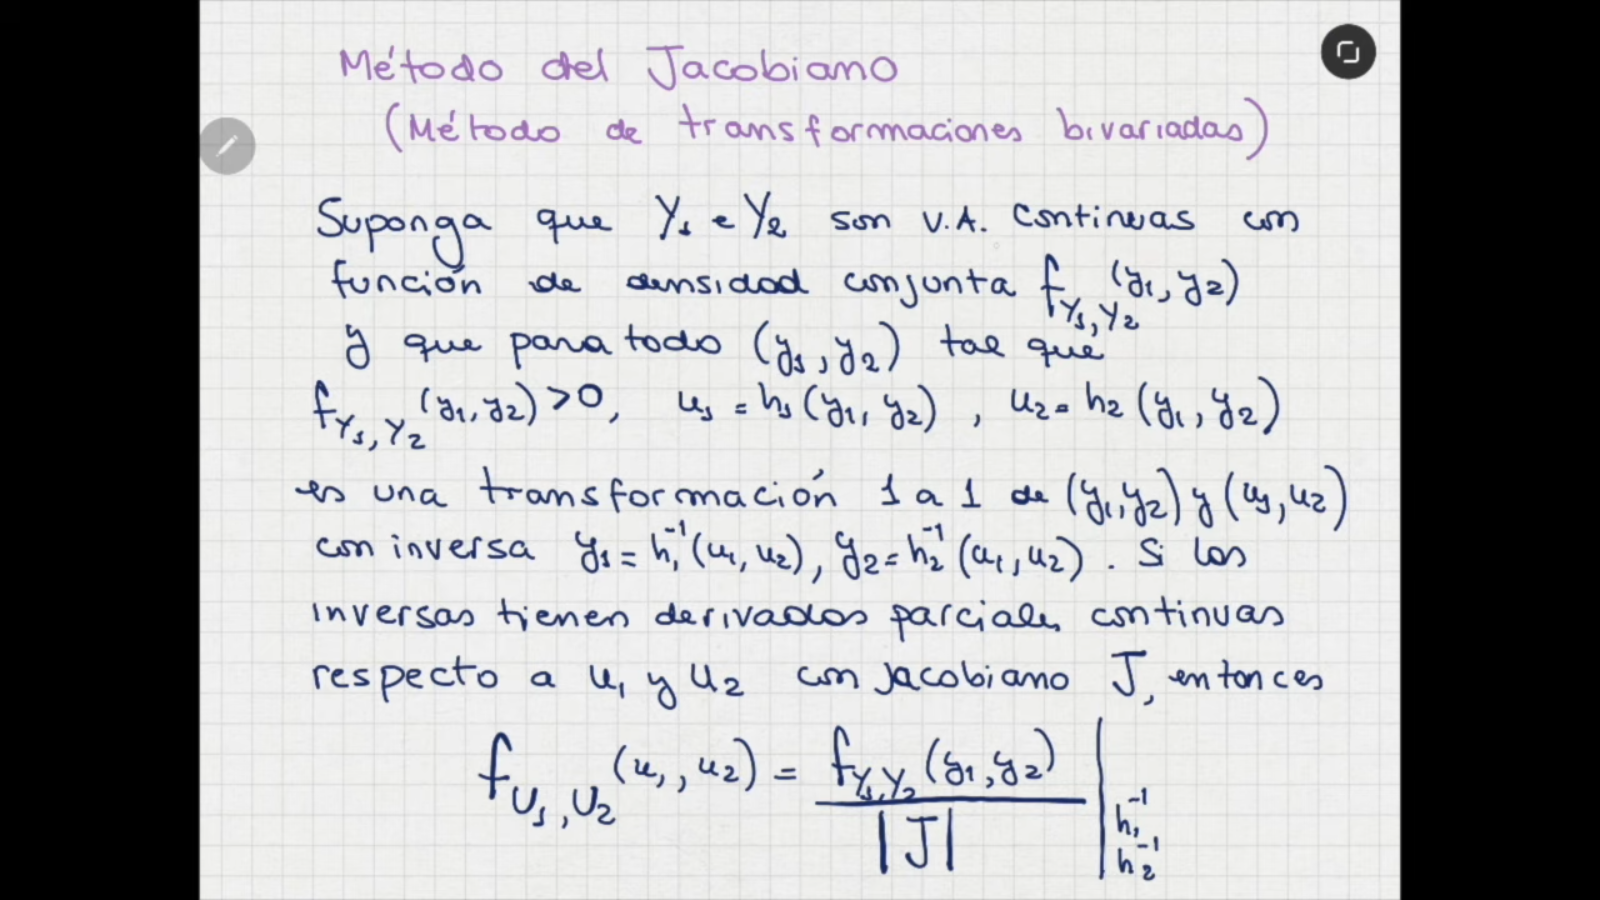 Método del Jacobiano
(Método de transformaciones bivariadas)
Suponga que Y₁ e Y₂ son V.A. continuas con
función de densidad conjunta f_{Y₁,Y₂}(y₁,y₂)
y que para todo (y₁,y₂) tal que
f_{Y₁,Y₂}(y₁,y₂)>0, u₁=h₁(y₁,y₂), u₂=h₂(y₁,y₂)
es una transformación 1 a 1 de (y₁,y₂) y (u₁,u₂)
con inversa y₁=h₁⁻¹(u₁,u₂), y₂=h₂⁻¹(u₁,u₂). Si las
inversas tienen derivadas parciales continuas
respecto a u₁ y u₂ con jacobiano J, entonces
f_{U₁,U₂}(u₁,u₂) = f_{Y₁,Y₂}(y₁,y₂) / |J| | h₁⁻¹ h₂⁻¹